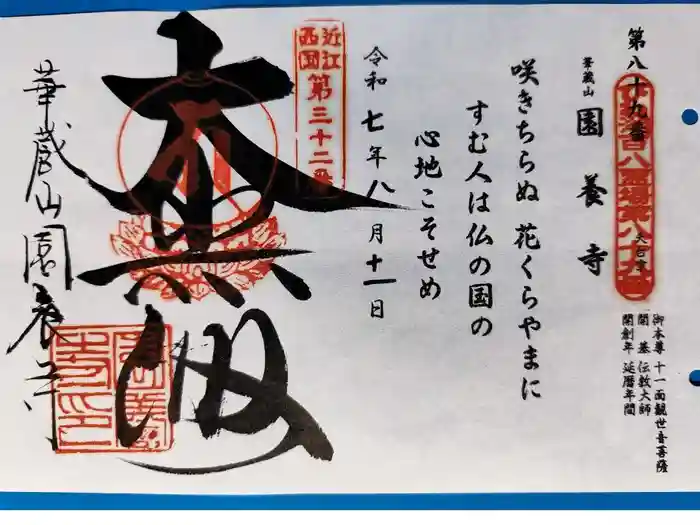 第八十九番
華蔵山
園養寺
天台宗
御本尊 十一面観世音菩薩
開基 伝教大師
開創年 延暦年間
咲きちらぬ 花くらやまに
すむ人は仏の国の
心地こそせめ
令和七年八月十一日
近江西国
第三十二番
本無佛
華蔵山園養寺